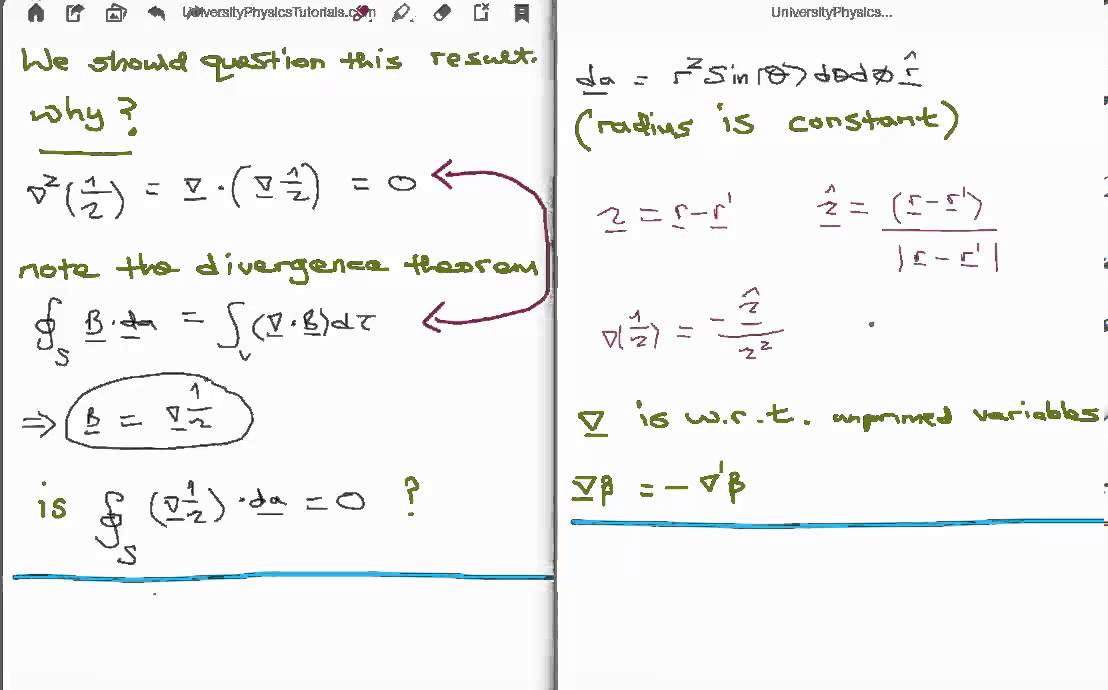 UniversityPhysicsTutorials.com
We should question this result.
why?
∇²(1/r) = ∇·(∇ 1/r) = 0
note the divergence theorem
∮_S B·da = ∫_V (∇·B)dτ
⇒ B = ∇ 1/r
is ∮_S (∇ 1/r)·da = 0 ?
UniversityPhysics...
da = r² Sin(θ)dθdφ r̂
(radius is constant)
r = r-r' r̂ = (r-r')/|r-r'|
∇(1/r) = -r̂/r²
∇ is w.r.t. unprimed variables
∇β = -∇'β